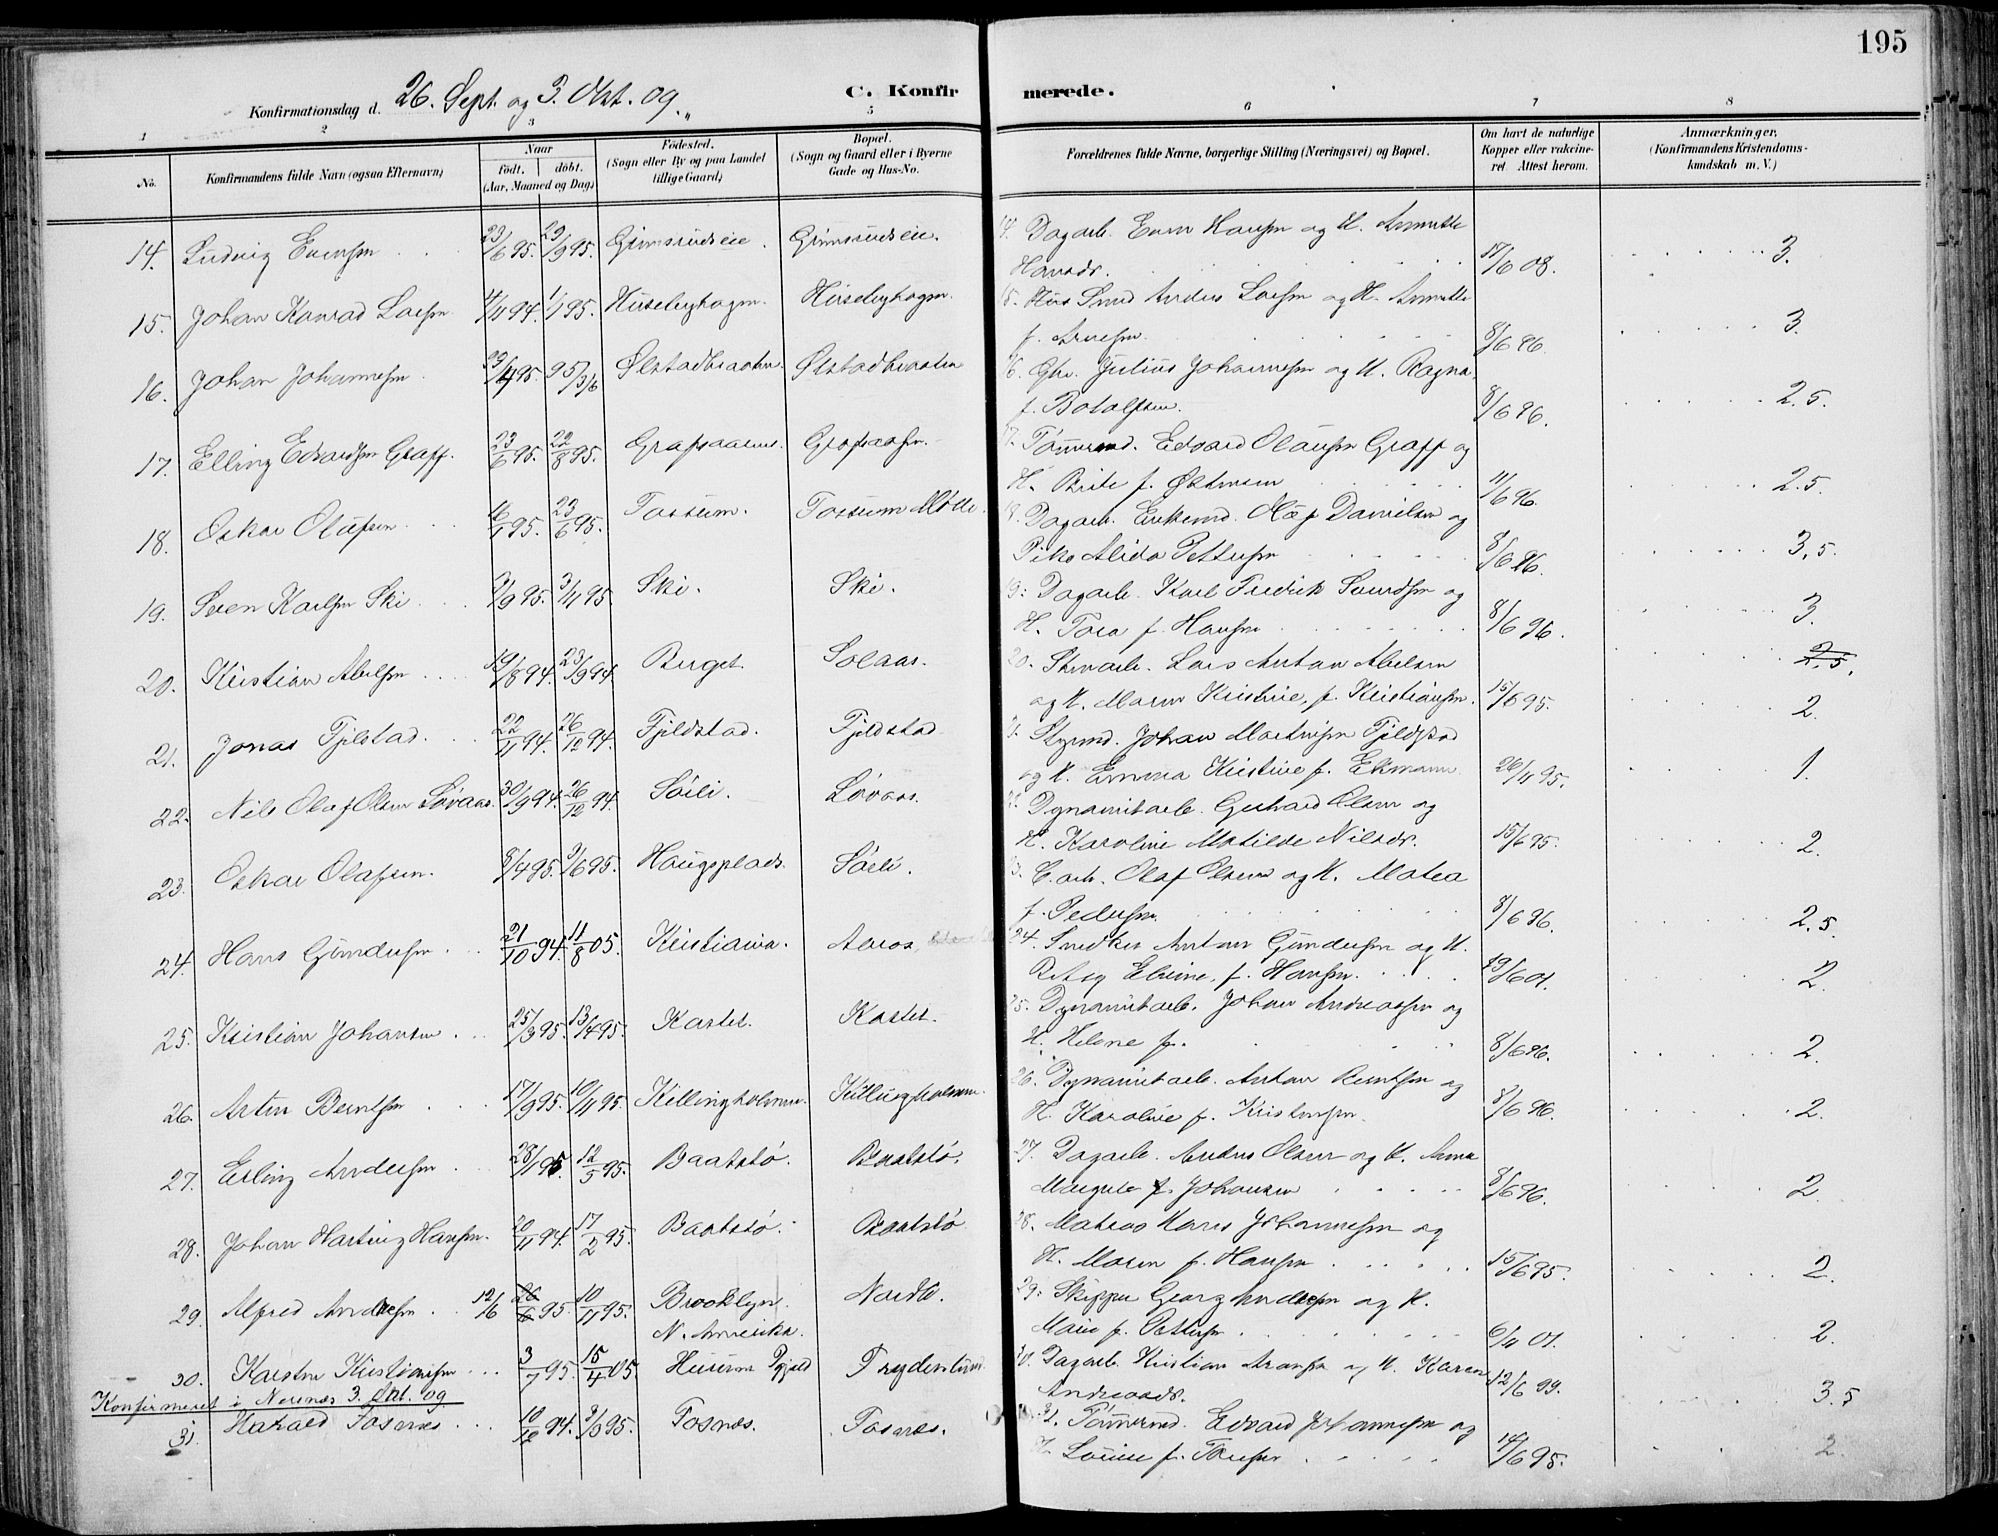 195
Konfirmationsdag d. 26. Sept. og 3. Okt. 09.
C. Konfirmerede.
1 2 3 5 6 7 8
No. Konfirmandens fulde Navn (ogsaa Efternavn) Naar født. døbt. (Aar, Maaned og Dag) Fødested. (Sogn eller By og paa Landet tillige Gaard) Bopæl. (Sogn og Gaard eller i Byerne Gade og Hus-No. Forældrenes fulde Navne, borgerlige Stilling (Næringsvei) og Bopæl. Om havt de naturlige Kopper eller vakcineret. Attest herom. Anmærkninger. (Konfirmandens Kristendomskundskab m. V.)
14. Ludvig Evensen 23/6 95. 29/9 95. Gimsrudseie. Gimsrudseie. 14. Dagarb. Even Hansen og H. Annette
Hansdr. 17/6 08. 3.
15. Johan Konrad Larsen 4/11 94. 1/1 95. Huseby Lars Anders Larsen og H. Annette
f. Arnesen 8/6 96. 3.
16. Johan Johannesen 23/4 95. 95 3/6 Ølstadbraaten Ølstadbraaten 16. Gbr. Julius Johannesen og H. Ragna,
f. Botolfsen. 8/6 96. 2.5.
17. Elling Edvardsen Graff. 23/6 95. 22/8 95. Grafsaasen. Grafsaasen. 17. Tømmermd. Edvard Olausen Graff og
H. Brite f. Østensen 11/6 96. 2.5.
18. Oskar Olufsen 16/1 95. 23/6 95. Fossum. Fossum Mølle. 18. Dagarb. Enkemd. Olaf Danielsen og
Pike Alida Pettersen 8/6 96. 3,5.
19. Søren Karlsen Ski 9/9 95. 3/11 95. Ski. Ski. 19. Dagarb. Karl Fredrik Svendsen og
H. Tora f. Hansen 8/6 96. 3.
20. Kristian Abelsen 19/8 94. 23/9 94. Berget. Solaas. 20. Stenarb. Lars Anton Abelsen
og H. Maren Kristine, f. Kristiansen. 15/6 95. 2.5.
21. Jonas Fjeldstad. 22/11 94. 26/12 94. Fjeldstad. Fjeldstad 21. Styrmd. Johan Martinsen Fjeldstad
og H. Emma Kristine f. Ekmann 26/11 95. 2. 1.
22. Nils Olaf Olsen Løvaas. 30/9 94. 26/12 94. Søili. Løvaas. 22. Dynamitarb. Gerhard Olsen og
H. Karoline Matilde Nilsdr. 15/6 95. 2.
23. Oskar Olafsen. 8/4 95. 9/6 95. Haugsplads. Søili. 23. Olaf Olsen og H. Matea
f. Pedersen 8/6 96. 2.5.
24. Hans Gundersen 21/10 94. 11/8 05. Kristiania. Aaros 24. Snedker Anton Gundersen og H.
Betsy Elvine, f. Hansen. 19/6 01. 2.
25. Kristian Johansen 25/3 95. 13/4 95. Kastet. Kastet. 25. Dynamitarb. Johan Andreassen og
H. Helene f. 8/6 96. 2.
26. Arten Berntsen 17/9 95. 10/11 95. Killingholmen. Killingholmen. 26. Dynamitarb. Anton Berntsen og
H. Karoline f. Kristensen. 8/6 96. 2.
27. Erling Andersen 28/1 95 12/5 95. Baatstø. Baatstø. 27. Dagarb. Anders Olsen og H. Anna
Margrete f. Johansen 8/6 96. 2.
28. Johan Harting Hansen. 20/11 94. 17/2 95. Baatstø. Baatstø 28. Matros Hans Johannesen og
H. Maren f. Hansen 15/6 95. 2.
29. Alfred Andersen 12/6 26/6 95. 10/11 95. Brooklyn. Nordli. 29. Skipper Georg Andersen og H.
N. Amerika. Marie f. Pettersen 6/4 01. 2.
30. Karsten Kristiansen 3/7 95. 15/4 05. Husum Frydenlund. 30. Dagarb. Kristian Aronsen og H. Karen
Andreasdr. 12/6 99. 3.5
Konfirmeret i Nersnes 3. Okt. 09
31. Harald Tosnæs 10/12 94. 9/9 95. Tosnæs. Tosnæs. 31. Tømmermd. Edvard Johannesen og
H. Louise f. 14/6 95. 2.